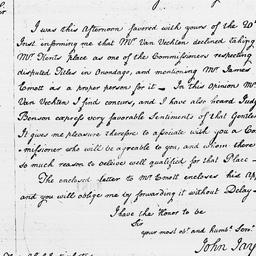 I was this Afternoon favored with yours of the 20th
Inst informing me that Mr. Van Vechten declined taking
Mr. Kents place as one of the Commissioners respecting
disputed Titles in Onondaga, and mentioning Mr. James
Emott as a proper person for it — In this opinion Mr.
Van Vechten I find concurs, and I have also heard Judge
Benson express very favorable Sentiments of that Gentle
It gives me pleasure therefore to associate with you a Com
missioner who will be agreeable to you, and whom there
so much reason to believe well qualified for that Place —
The enclosed letter to Mr. Emott encloses his
and you will oblige me by forwarding it without Delay
I have the Honor to be
Sir
your most obt. and humb. Servt.
John Jay